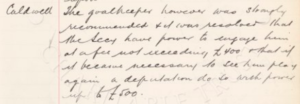 Caldwell The goalkeeper however was strongly
recommended & it was resolved that
the Secy have power to engage him
at a fee not exceeding £400 & that if
it became necessary to see him play
again a deputation do so with power
up to £500.